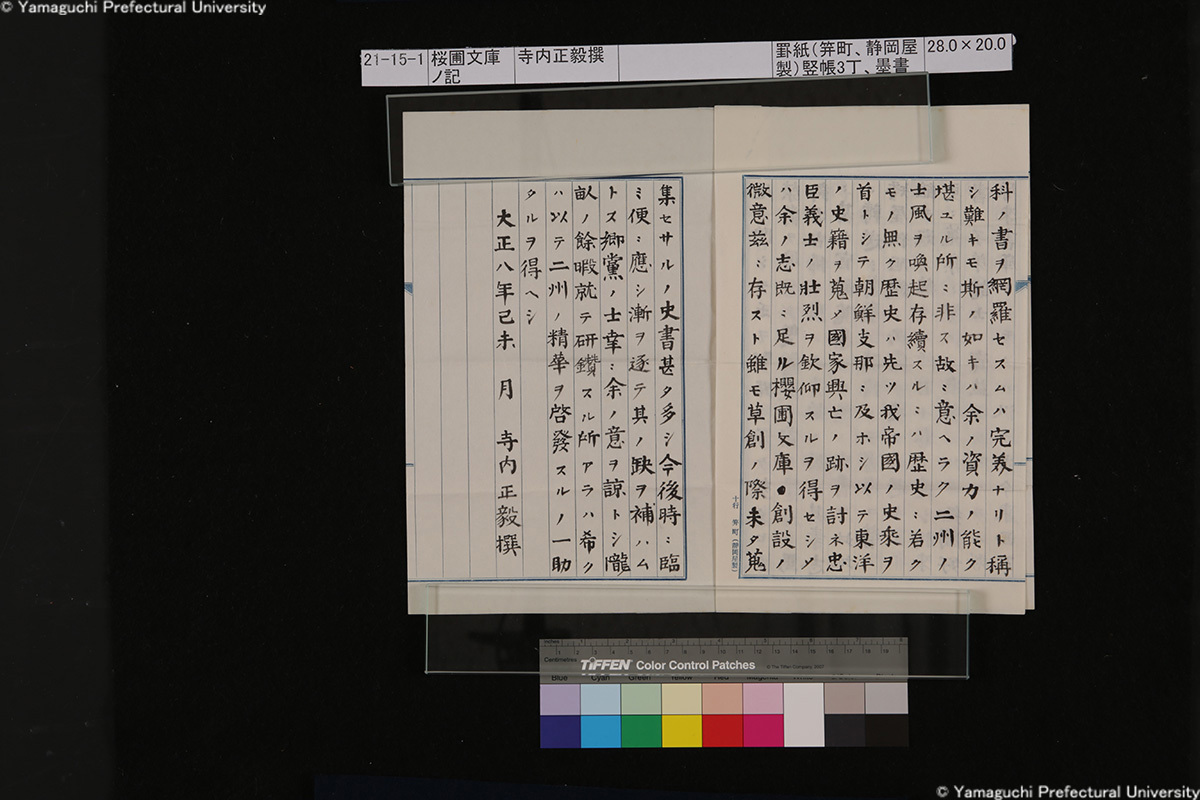 © Yamaguchi Prefectural University
21-15-1
桜圃文庫
ノ記
寺内正毅撰
罫紙(笄町、静岡屋
製)竪帳3丁、墨書
28.0×20.0
科ノ書ヲ網羅セスムハ完美ナリト稱
シ難キモ斯ノ如キハ余ノ資力ノ能ク
堪ユル所ニ非ス故ニ意ヘラク二州ノ
士風ヲ喚起存續スルニハ歴史ニ若ク
モノ無ク歴史ハ先ツ我帝國ノ史乘ヲ
首トシテ朝鮮支那ニ及ホシ以テ東洋
ノ史籍ヲ蒐メ國家興亡ノ跡ヲ討ネ忠
臣義士ノ壮烈ヲ欽仰スルヲ得セシメ
ハ余ノ志既ニ足ル櫻圃文庫ノ創設ノ
微意茲ニ存スト雖モ草創ノ際未タ蒐
十行 笄町(静岡屋製)
集セサルノ史書甚タ多シ今後時ニ臨
ミ便ニ應シ漸ヲ逐テ其ノ缺ヲ補ハム
トス郷黨ノ士幸ニ余ノ意ヲ諒トシ隴
畝ノ餘暇就テ研鑽スル所アラハ希ク
ハ以テ二州ノ精華ヲ啓發スルノ一助
タルヲ得ヘシ
大正八年己未 月 寺内正毅撰
Inches
Centimetres
TIFFEN Color Control Patches
© The Tiffen Company, 2007
Blue Cyan Green Yellow Red Magenta
© Yamaguchi Prefectural University